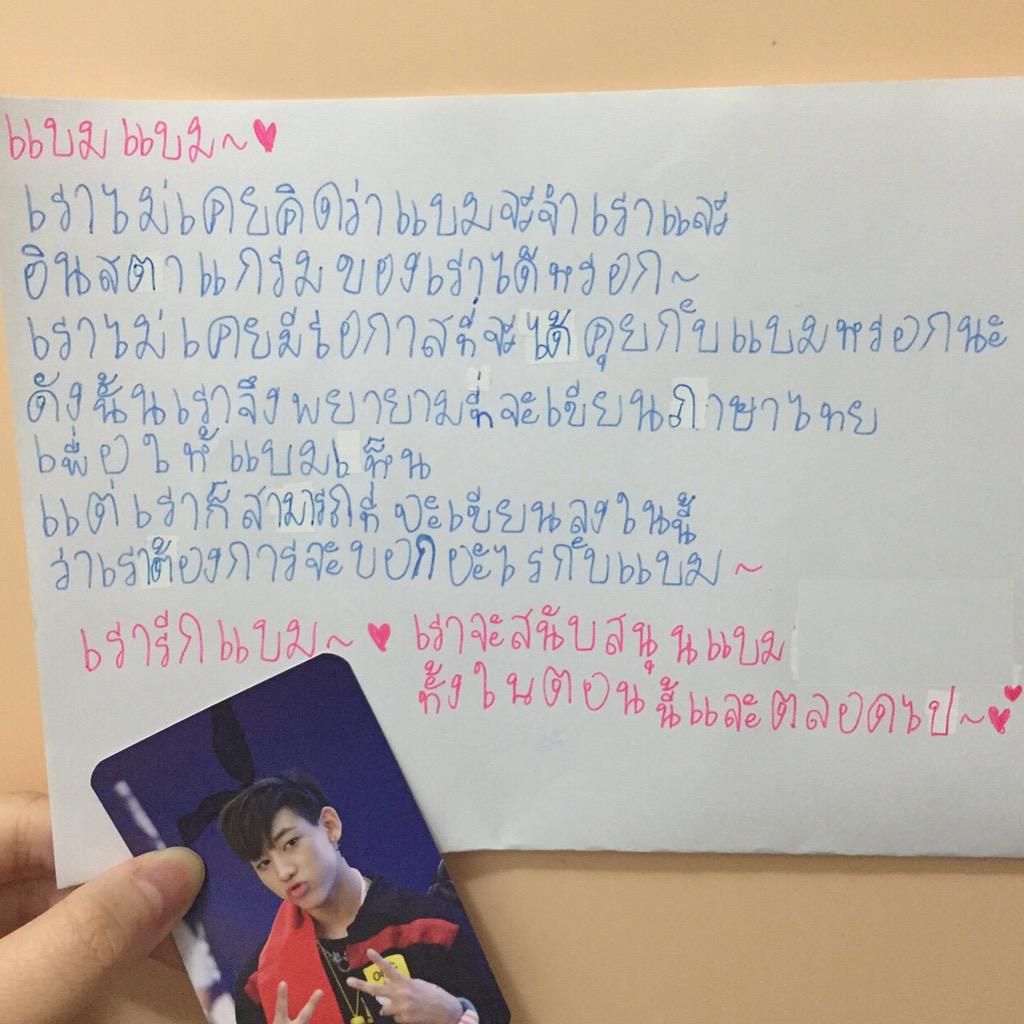 แบมแบม~♥
เราไม่เคยคิดว่าแบมจะจำเราและ
อินสตาแกรมของเราได้หรอก~
เราไม่เคยมีโอกาสที่จะได้คุยกับแบมหรอกนะ
ดังนั้นเราจึงพยายามที่จะเขียนภาษาไทย
เพื่อให้แบมเห็น
แต่เราก็สามารถที่จะเขียนลงในนี้
ว่าเราต้องการจะบอกอะไรกับแบม~
เรารักแบม~♥ เราจะสนับสนุนแบม
ทั้งในตอนนี้และตลอดไป~♥♥